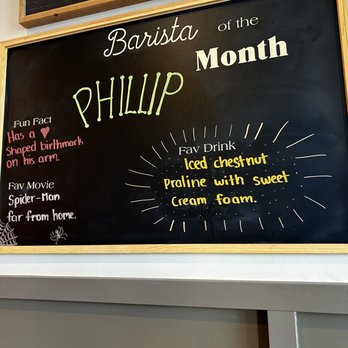 Barista of the
Month
PHILLIP
Fun Fact
Has a ♥
Shaped birthmark
on his arm.
Fav Movie
Spider-Man
far from home.
Fav Drink
Iced chestnut
Praline with sweet
Cream foam.